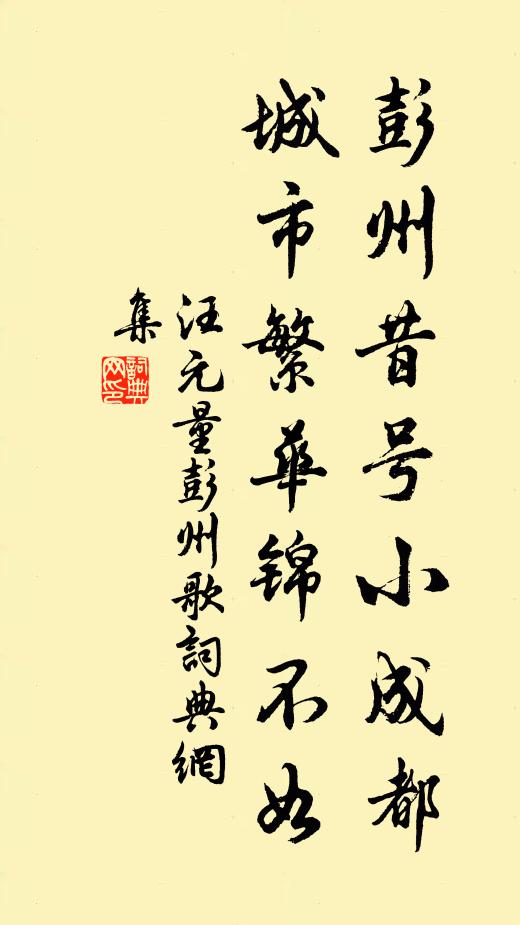 彭州昔号小成都
城市繁華錦不如
汪元量彭州歌詞典網
集
詞典網印